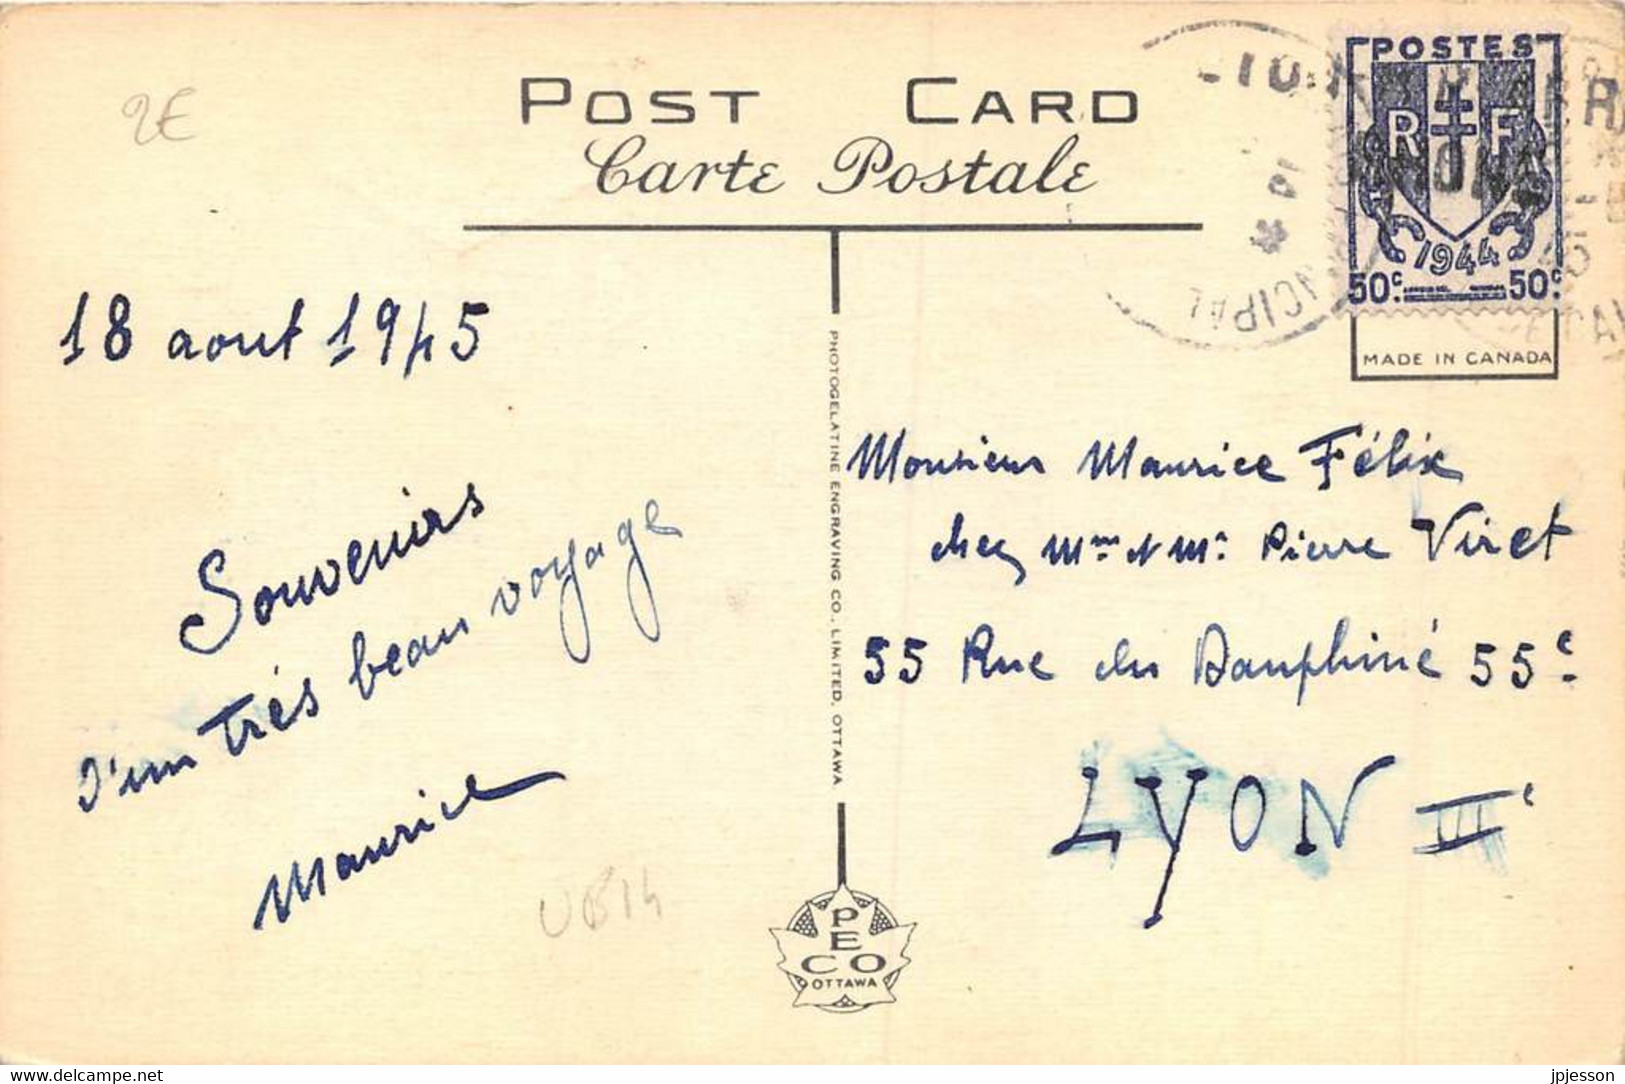 2€
POST CARD
Carte Postale
POSTES
RF
1944
50c 50c
CIPAL
MADE IN CANADA
18 aout 1945
Souvenirs
d'un très beau voyage
Maurice
UB14
PHOTOGELATINE ENGRAVING CO., LIMITED, OTTAWA
PECO
OTTAWA
Monsieur Maurice Félix
chez Mme et Mr Pierre Viret
55 Rue du Dauphiné 55e
LYON IIe
delcampe.net
jpjesson